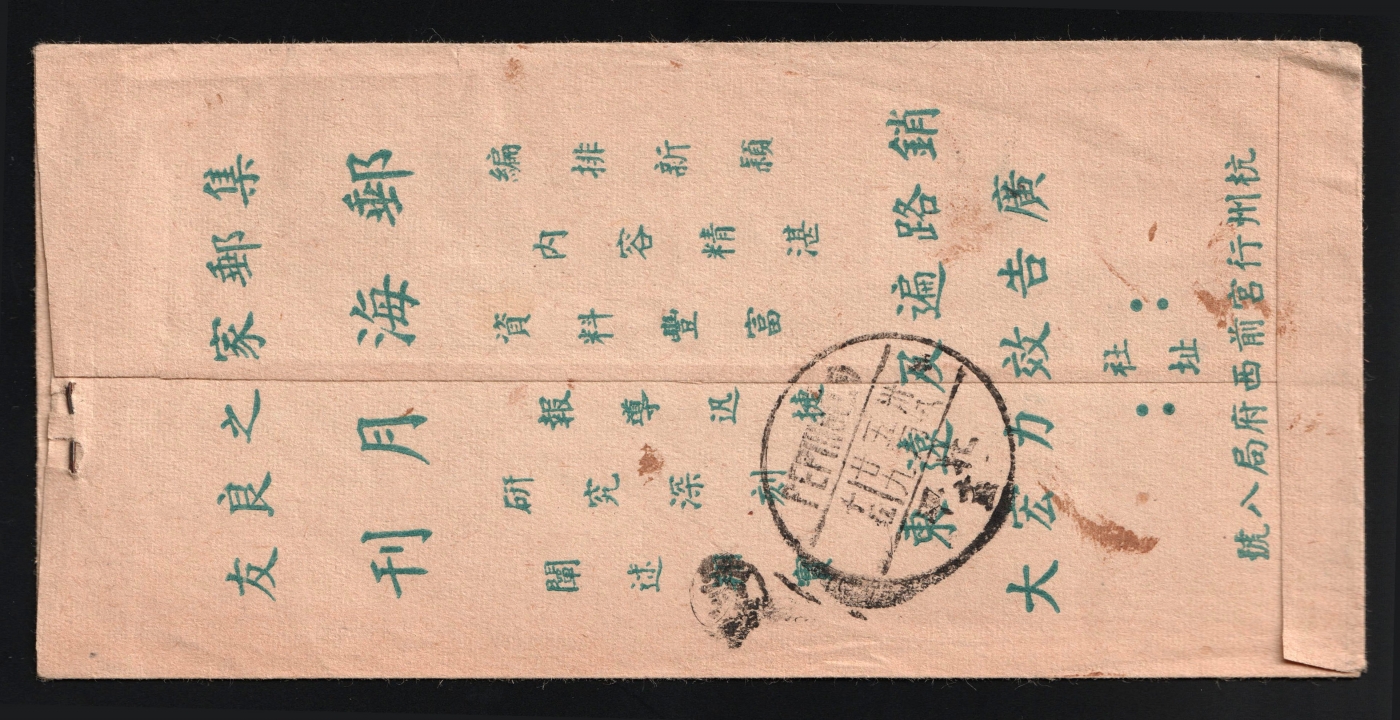 集郵家之良友
郵海月刊
編排新穎
内容精湛
資料豐富
報導迅捷
研究深刻
闡述翔實
銷路遍及遠東
廣告效力宏大
:社址:
杭州行宮前西府局八號